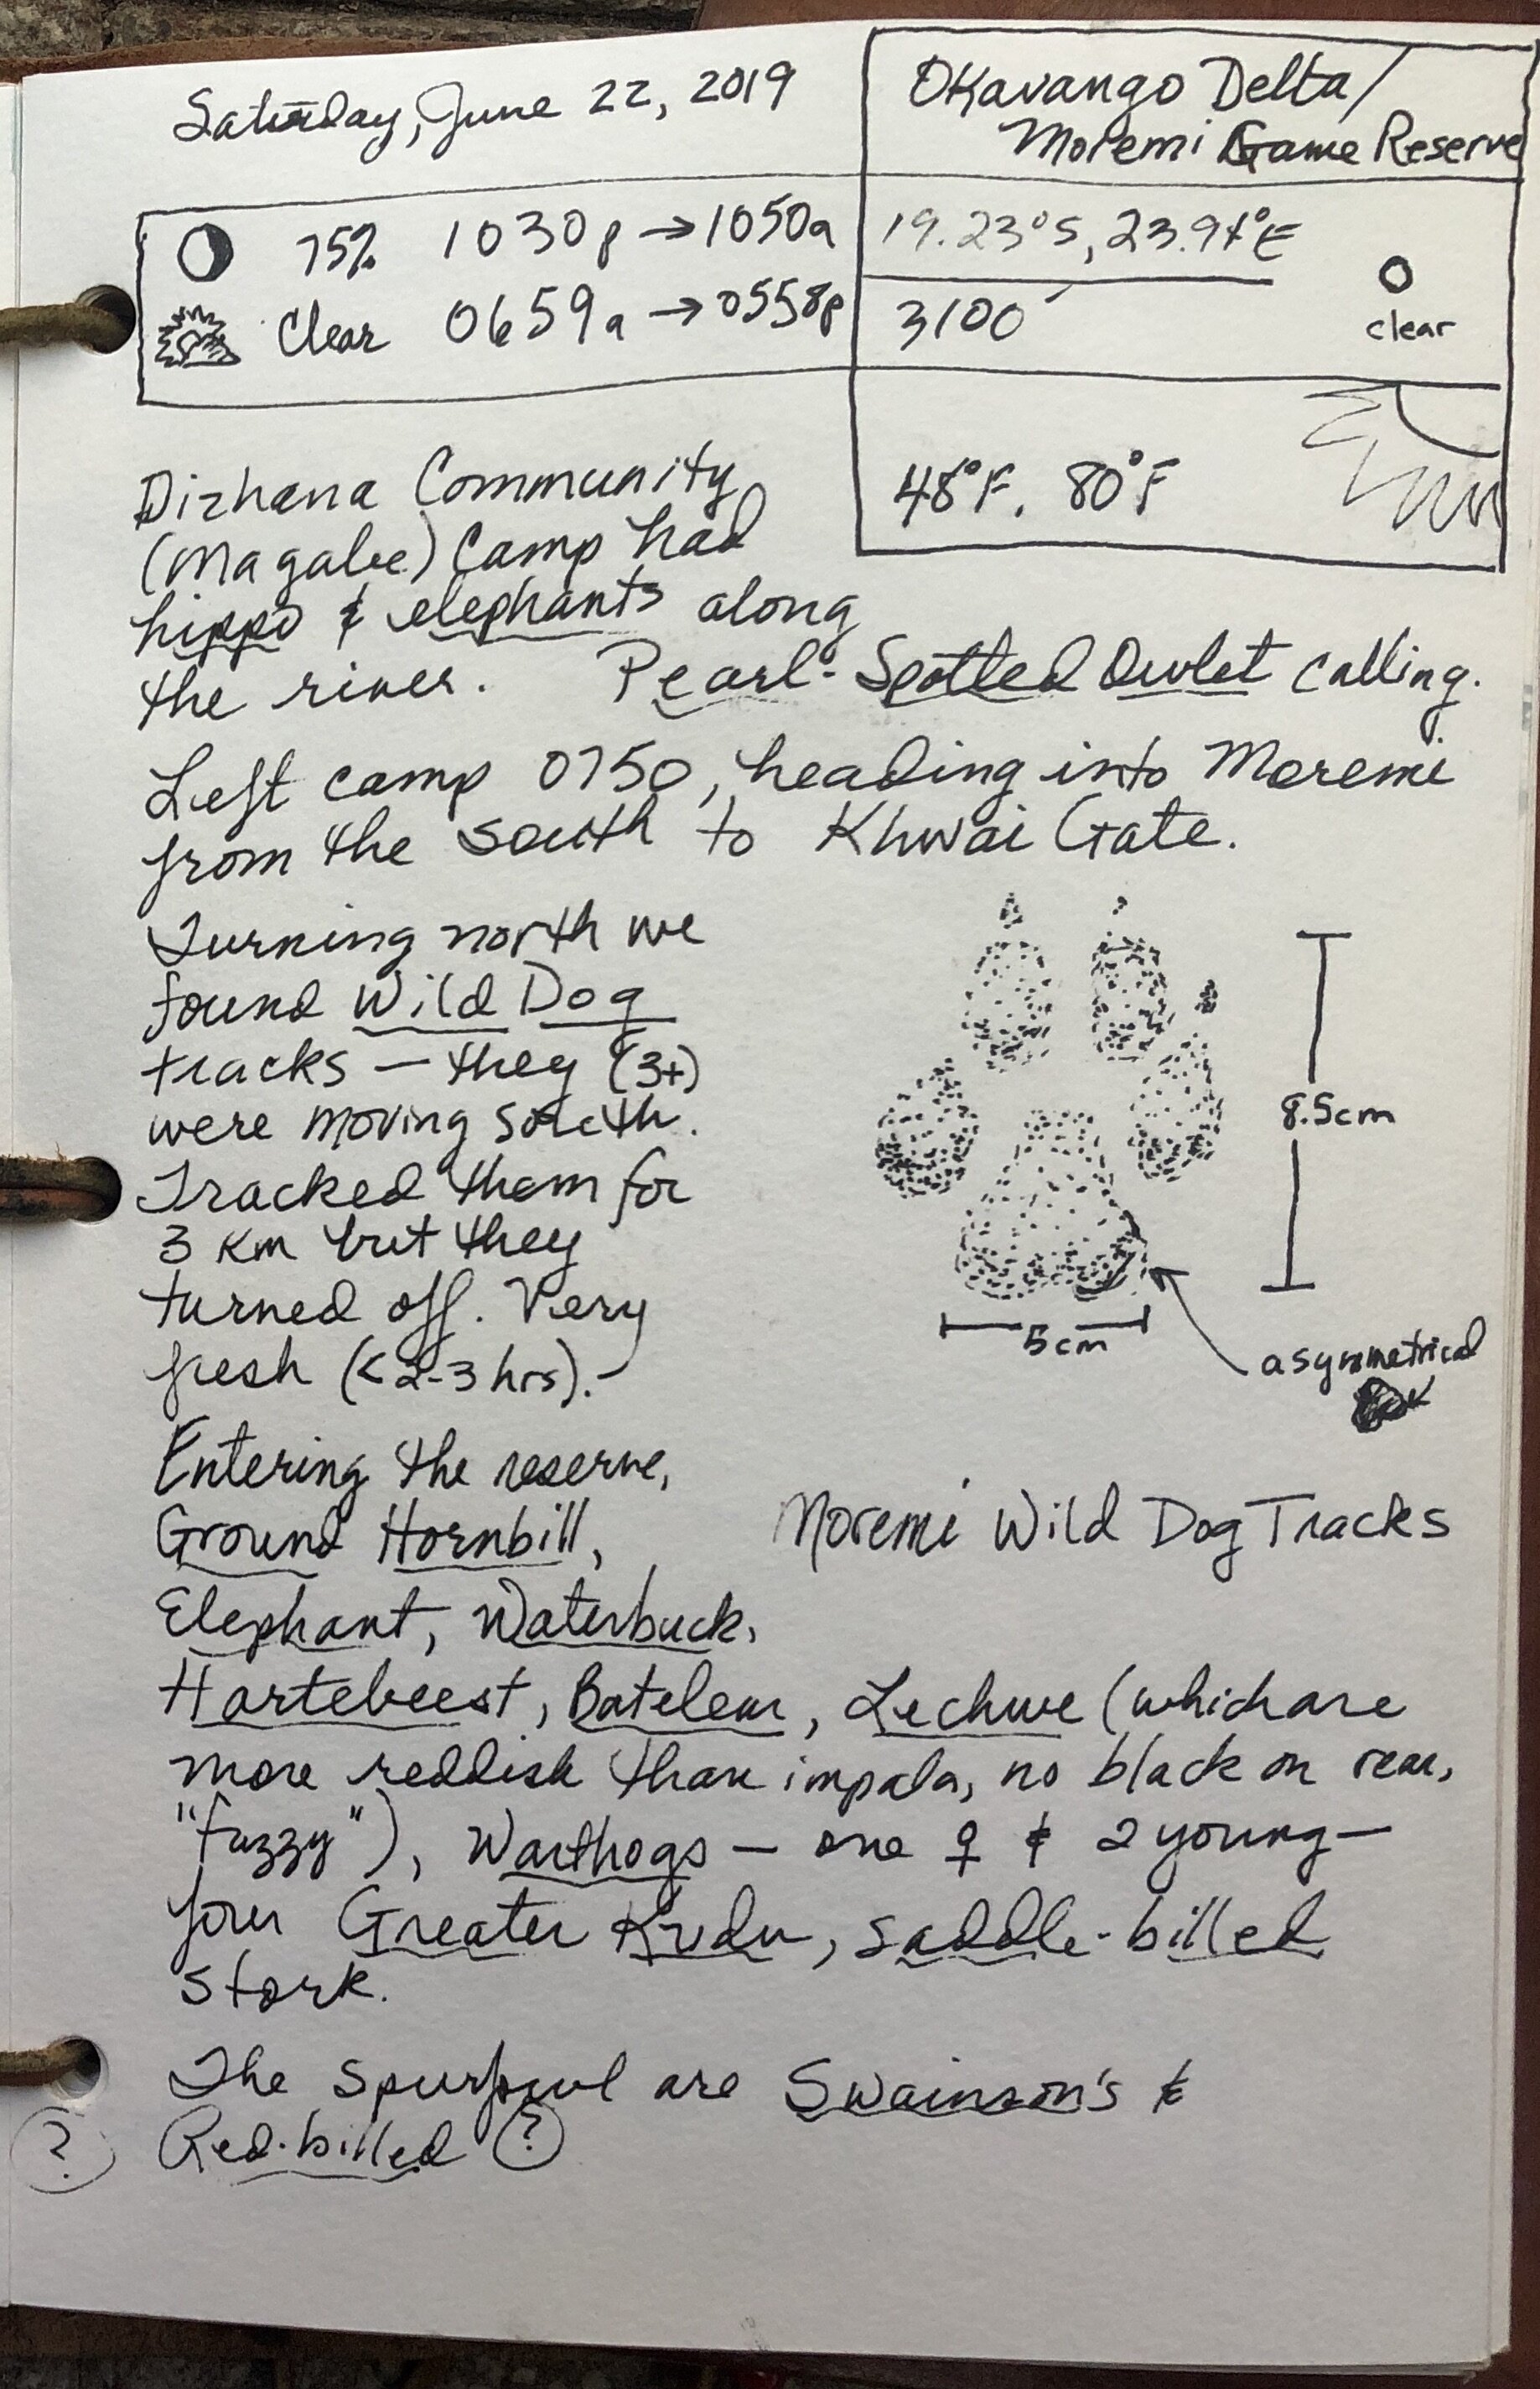 Saturday, June 22, 2019
Okavango Delta/
Moremi Game Reserve
75% 1030p → 1050a
Clear 0659a → 0558p
19.23°S, 23.97°E
3100'
clear
48°F, 80°F
Dizhana Community
(Magabe) Camp had
hippo & elephants along
the river. Pearl-Spotted Owlet calling.
Left camp 0750, heading into Moremi
from the south to Khwai Gate.
Turning north we
found Wild Dog
tracks — they (3+)
were moving south.
Tracked them for
3 km but they
turned off. Very
fresh (<2-3 hrs).
8.5cm
5cm
asymmetrical
Moremi Wild Dog Tracks
Entering the reserve,
Ground Hornbill,
Elephant, Waterbuck,
Hartebeest, Bateleur, Lechwe (which are
more reddish than impala, no black on rear,
"fuzzy"), Warthogs — one ♀ & 2 young —
four Greater Kudu, Saddle-billed
Stork.
The spurfowl are Swainson's &
? Red-billed ?